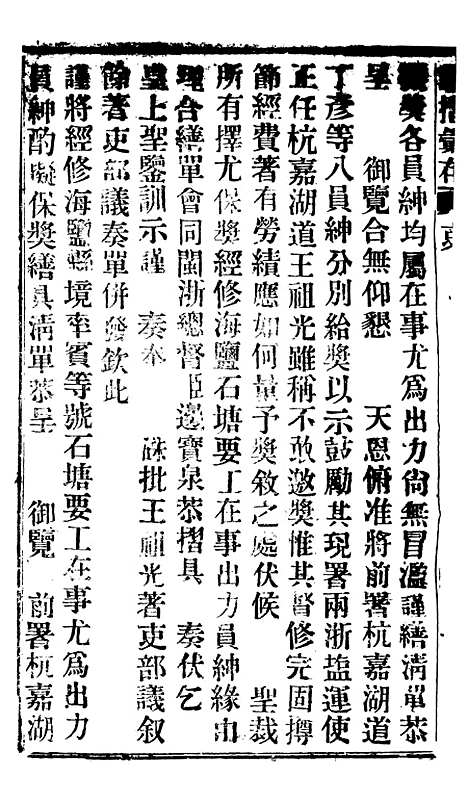 獎各員紳均屬在事尤為出力尙無冒濫謹繕淸單恭
呈 御覽合無仰懇 天恩俯准將前署杭嘉湖道
丁彥等八員紳分別給獎以示鼓勵其現署兩浙塩運使
正任杭嘉湖道王祖光雖稱不敢邀獎惟其督修完固撙
節經費著有勞績應如何量予獎敘之處伏候 聖裁
所有擇尤保獎經修海鹽石塘要工在事出力員紳緣由
理合繕單會同閩浙總督臣邊寶泉恭摺具 奏伏乞
皇上聖鑒訓示謹 奏奉 硃批王祖光著吏部議叙
餘著吏部議奏單併發欽此
謹將經修海鹽縣境率賓等號石塘要工在事尤為出力
員紳酌擬保獎繕具淸單恭呈 御覽 前署杭嘉湖